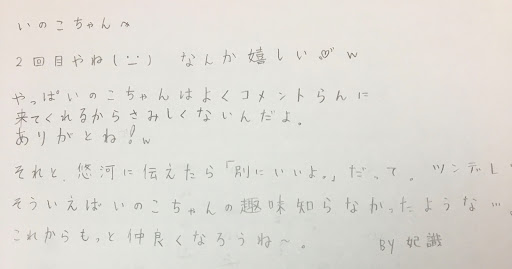 いのこちゃんへ
2回目やね(˙-˙) なんか嬉しい♡w
やっぱいのこちゃんはよくコメントらんに
来てくれるからさみしくないんだよ。
ありがとね!w
それと、悠河に伝えたら「別にいいよ。」だって。ツンデレ
そういえばいのこちゃんの趣味知らなかったような…
これからもっと仲良くなろうね〜。 BY 妃識